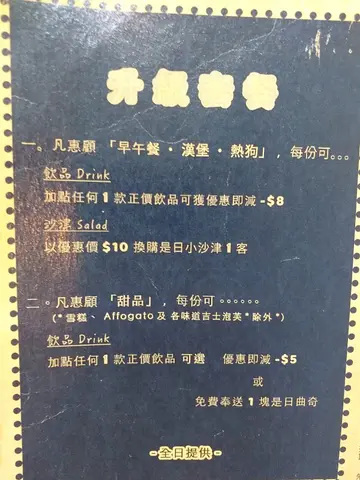 升級套餐
一。凡惠顧 「早午餐・漢堡・熱狗」, 每份可。。。
飲品 Drink
加點任何 1 款正價飲品可獲優惠即減 -$8
沙津 Salad
以優惠價 $10 換購是日小沙津 1 客
二。凡惠顧 「甜品」, 每份可。。。。。。
(*雪糕、Affogato 及 各味道吉士泡芙*除外*)
飲品 Drink
加點任何 1 款正價飲品 可選 優惠即減 -$5
或
免費奉送 1 塊是日曲奇
- 全日提供 -